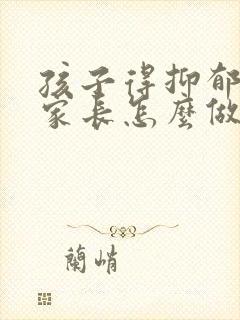 孩子得抑郁
家长怎麽做
蘭峭